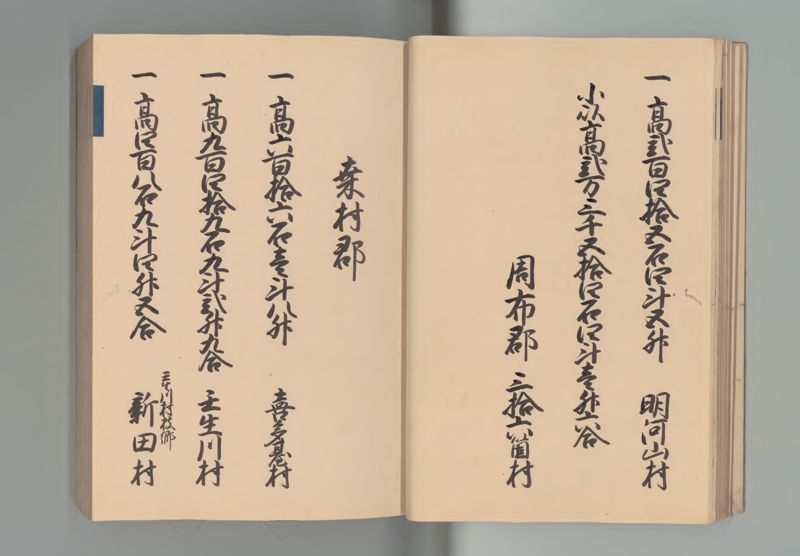 一 高弐百四拾五石四斗五升 明河山村
小以高弐万三千五拾四石四斗壱升六合
周布郡 三拾六箇村
桑村郡
一 高六百拾六石壱斗八升 喜多台村
一 高九百四拾九石九斗弐升九合 壬生川村
壬生川村枝郷
一 高四百八石九斗四升五合 新田村